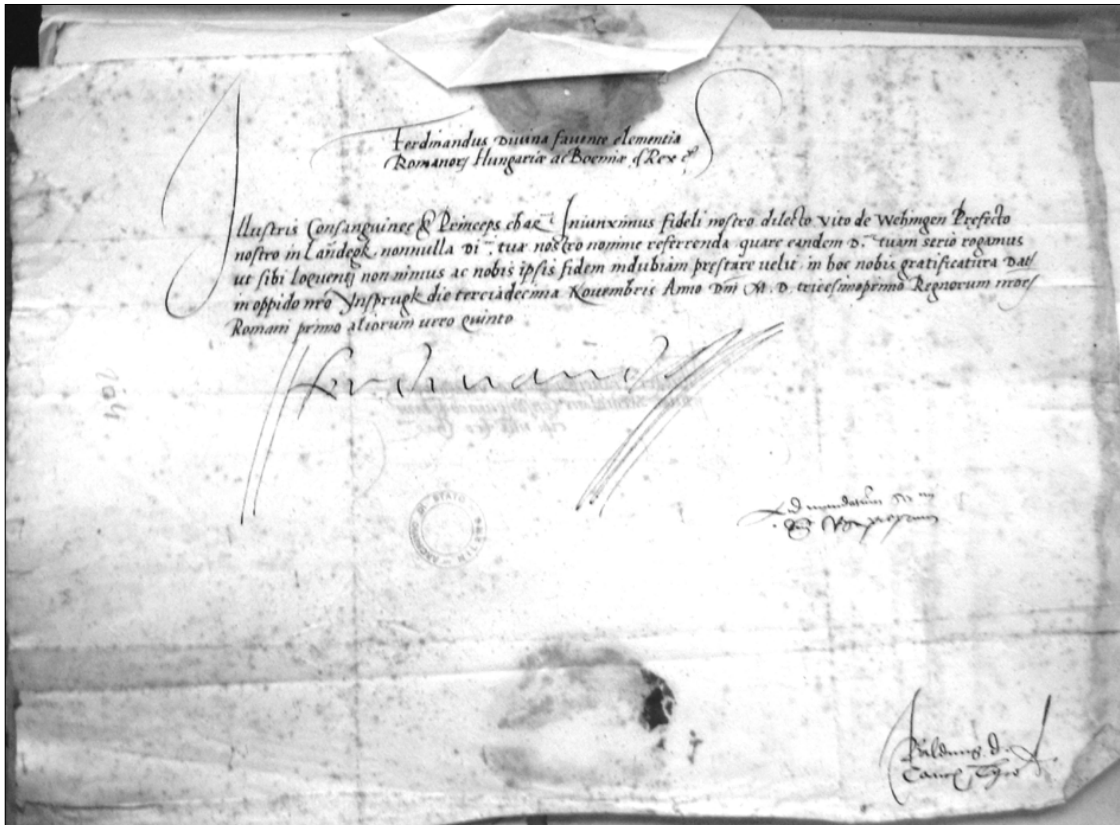 Ferdinandus Divina favente clementia
Romanorȝ Hungariæ ac Boemiæ ꝙ Rex ꝛc̃
Illustris Consanguinee & Princeps charᵐᵉ Iniunximus fideli nostro dilecto Vito de Wehingen Prefecto
nostro in Landegk, nonnulla Diⁿⁱ tuæ nostro nomine referrenda, quare eandem D.ⁿᵉᵐ tuam serio rogamus
ut sibi loquentj non minus ac nobis ipsis fidem indubiam prestare velit, in hoc nobis gratificatura Datȝ
in oppido nr̃o Ynsprugk die terciadecima Novembris Anno Dnj M. D. tricesimoprimo Regnorum nr̃orȝ
Romani primo aliorum vero Quinto
Ferdinand
Ad mandatum
ARCHIVIO DI STATO MILANO